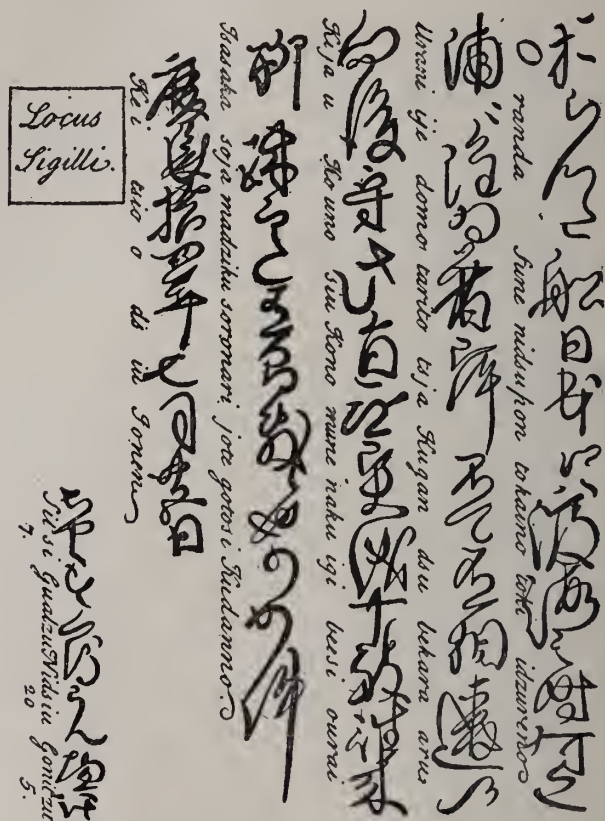 船日本江渡海之時何之
O randa fune nidsupon tokaino toki idzureno
浦に雖為着岸不可有相違候
Urani ije domo tarito tsja Kugan dsu bekara arus
向後守此旨無異儀可致往来
Kija u Ko uno siu Kono mune naku igi besi ourai
聊疎意有間敷候也仍如件
Isasaka soja madziku soronari, jote gotosi Kudanno.
慶長拾四年七月廿五日
Ke i tsio o ds iu Sonen
Sitsi Guatzu Nidsiu Gonitzu
7. 20 5.
Locus
Sigilli.